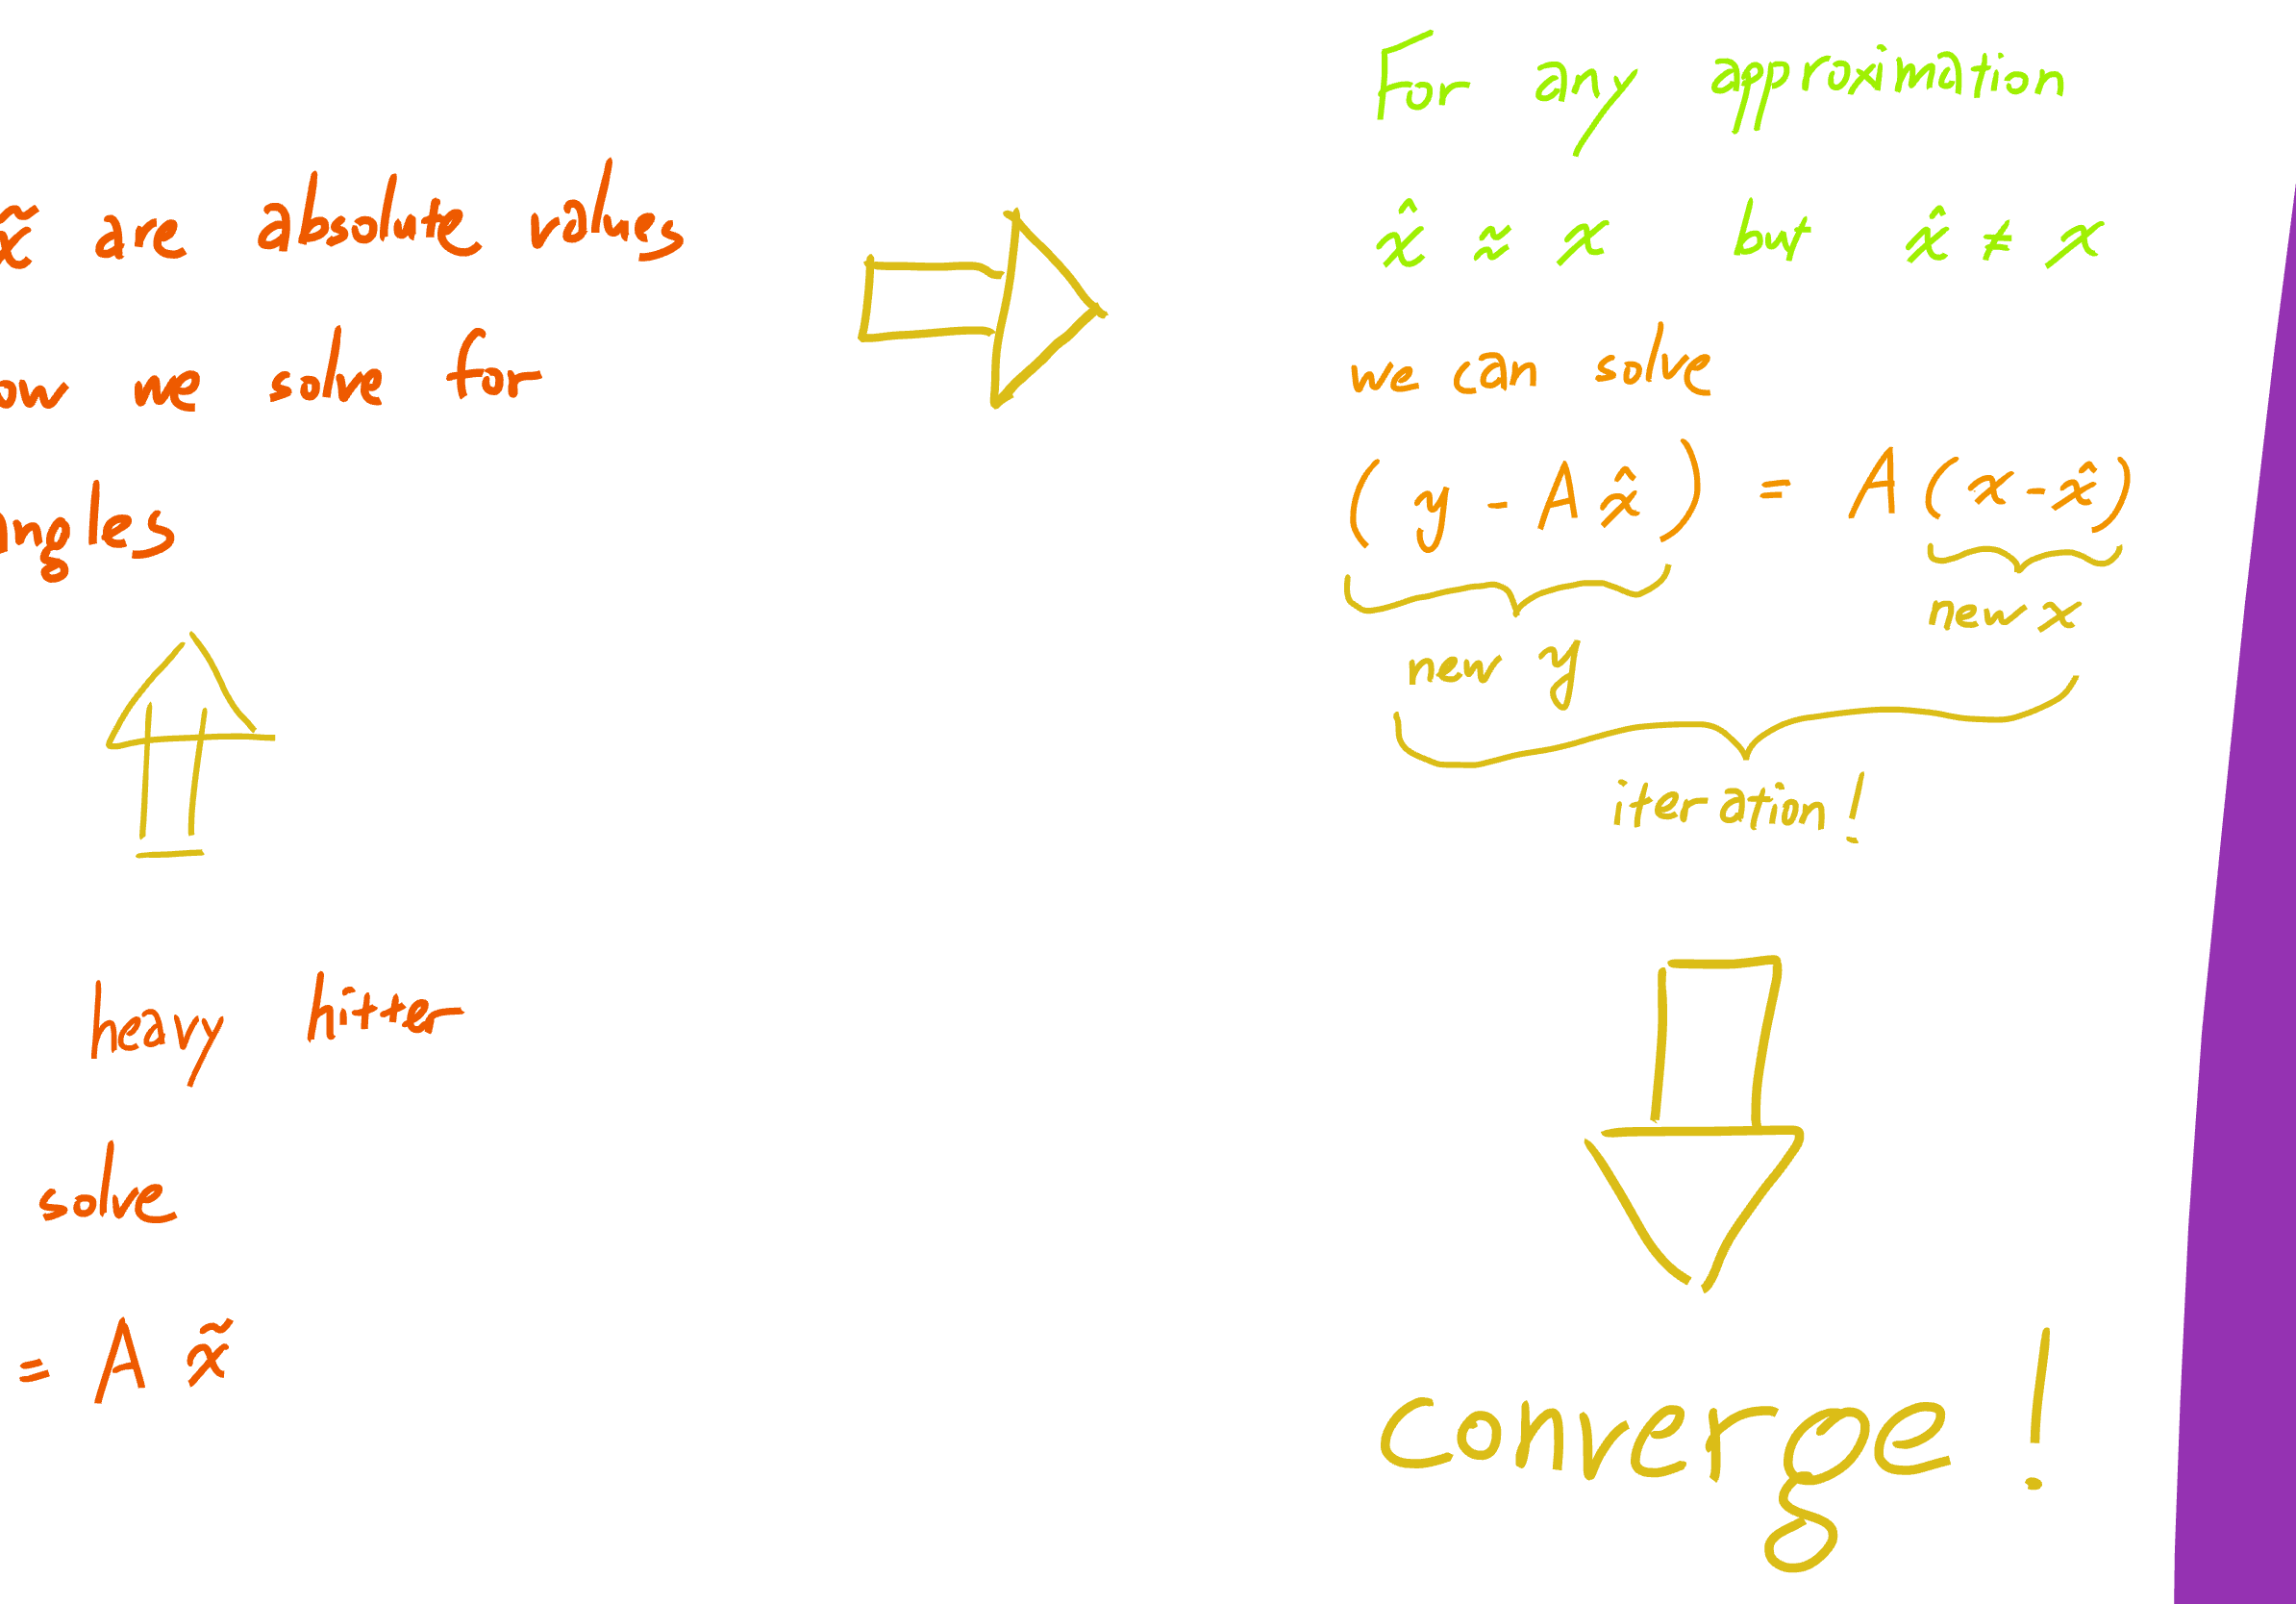 x̃ are absolute values
we solve for
heavy hitter
solve
= A x̃
For any approximation
x̂ ≈ x but x̂ ≠ x
we can solve
(y - A x̂) = A (x - x̂)
new x
new y
iteration!
converge!